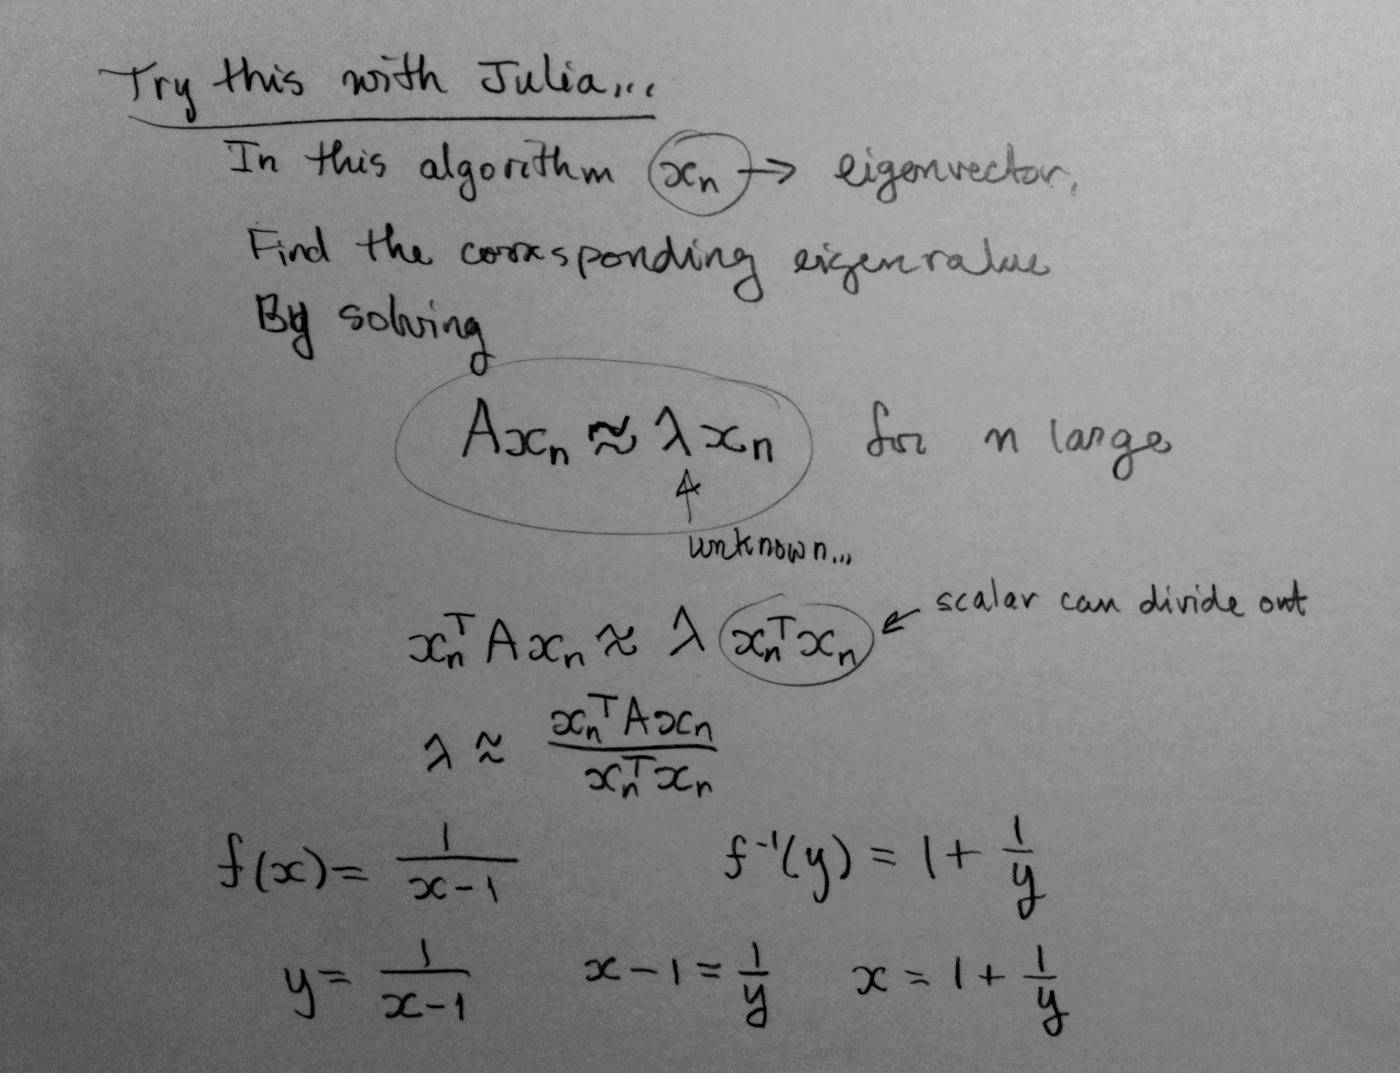 Try this with Julia...
In this algorithm xₙ → eigenvector.
Find the corresponding eigenvalue
By solving
Axₙ ≈ λxₙ for n large
↑
unknown...
scalar can divide out
xₙᵀAxₙ ≈ λ xₙᵀxₙ ←
λ ≈ xₙᵀAxₙ / xₙᵀxₙ
f(x) = 1/(x-1) f⁻¹(y) = 1 + 1/y
y = 1/(x-1) x-1 = 1/y x = 1 + 1/y